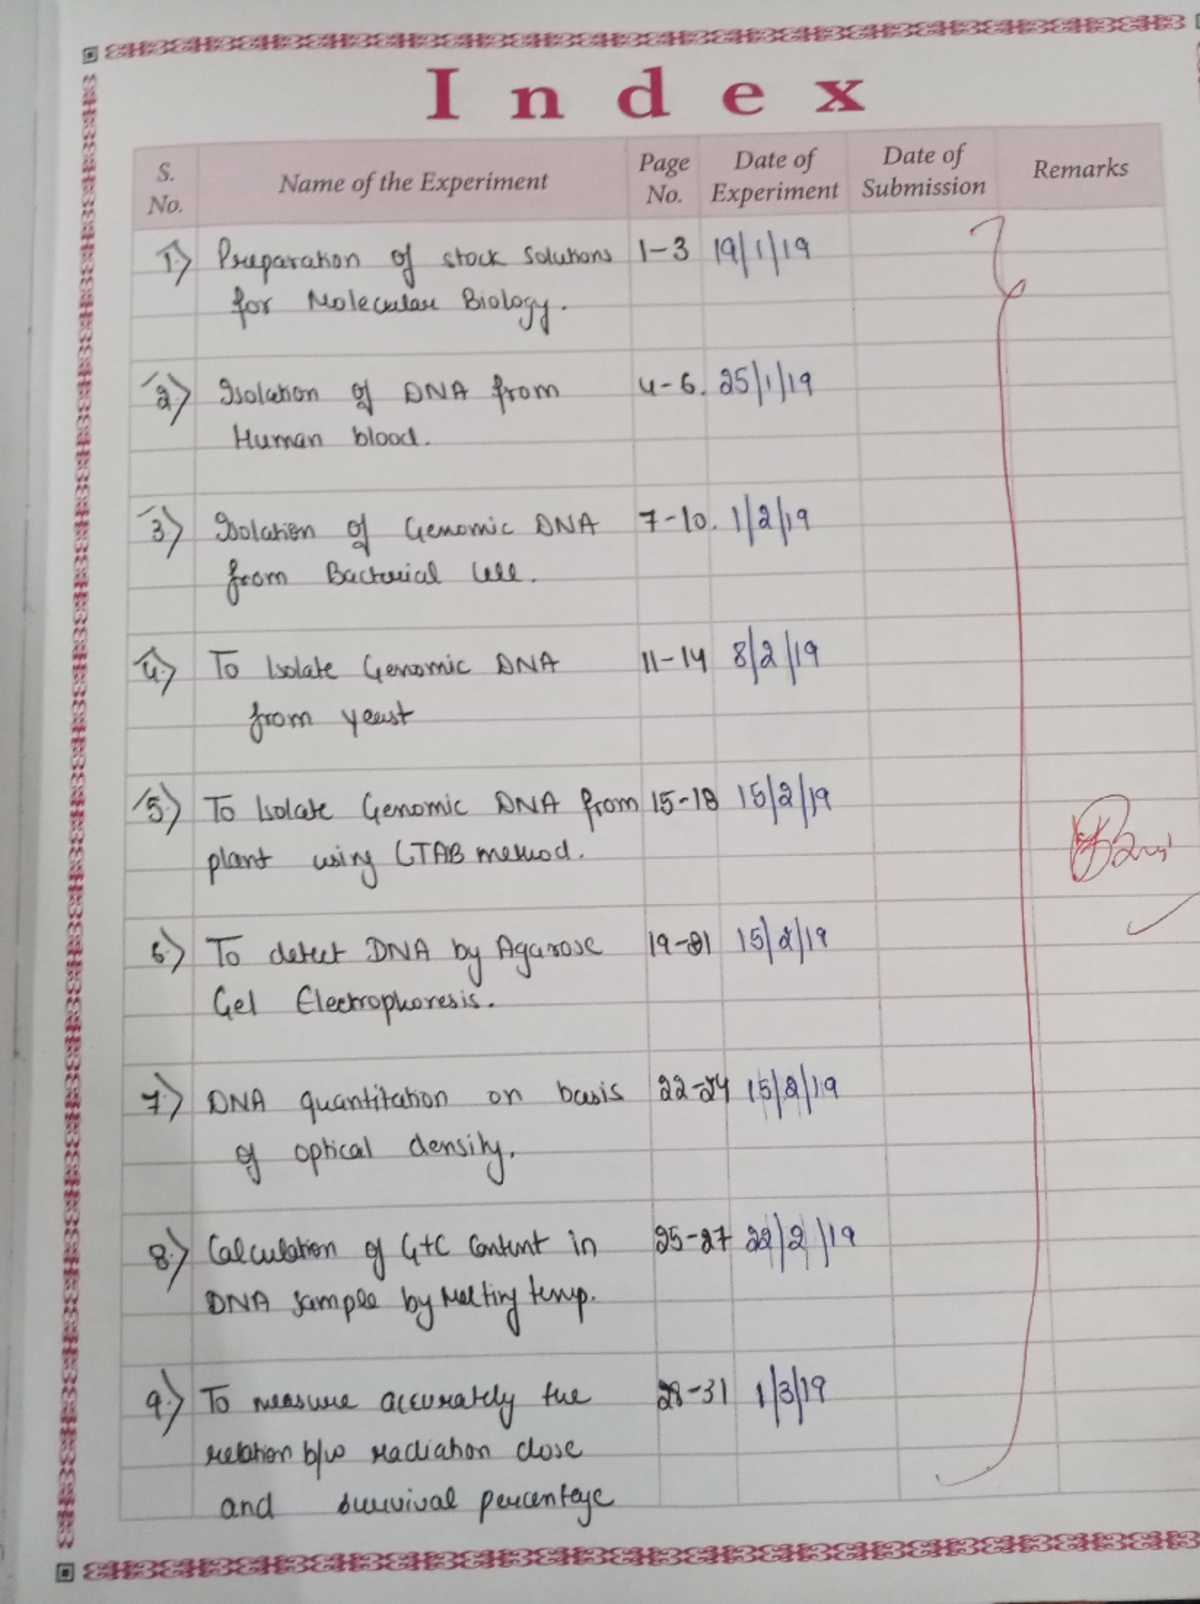 Index
S. No. Name of the Experiment Page No. Date of Experiment Date of Submission Remarks
1) Preparation of stock solutions 1-3 19/1/19
for Molecular Biology.
2) Isolation of DNA from 4-6. 25/1/19
Human blood.
3) Isolation of Genomic DNA 7-10. 1/2/19
from Bacterial Cell.
4) To Isolate Genomic DNA 11-14 8/2/19
from yeast
5) To Isolate Genomic DNA from 15-18 15/2/19
plant using CTAB method.
6) To detect DNA by Agarose 19-21 15/2/19
Gel Electrophoresis.
7) DNA quantitation on basis 22-24 15/2/19
of optical density.
8) Calculation of G+C Content in 25-27 22/2/19
DNA sample by Melting temp.
9) To measure accurately the 28-31 1/3/19
relation b/w radiation dose
and survival percentage